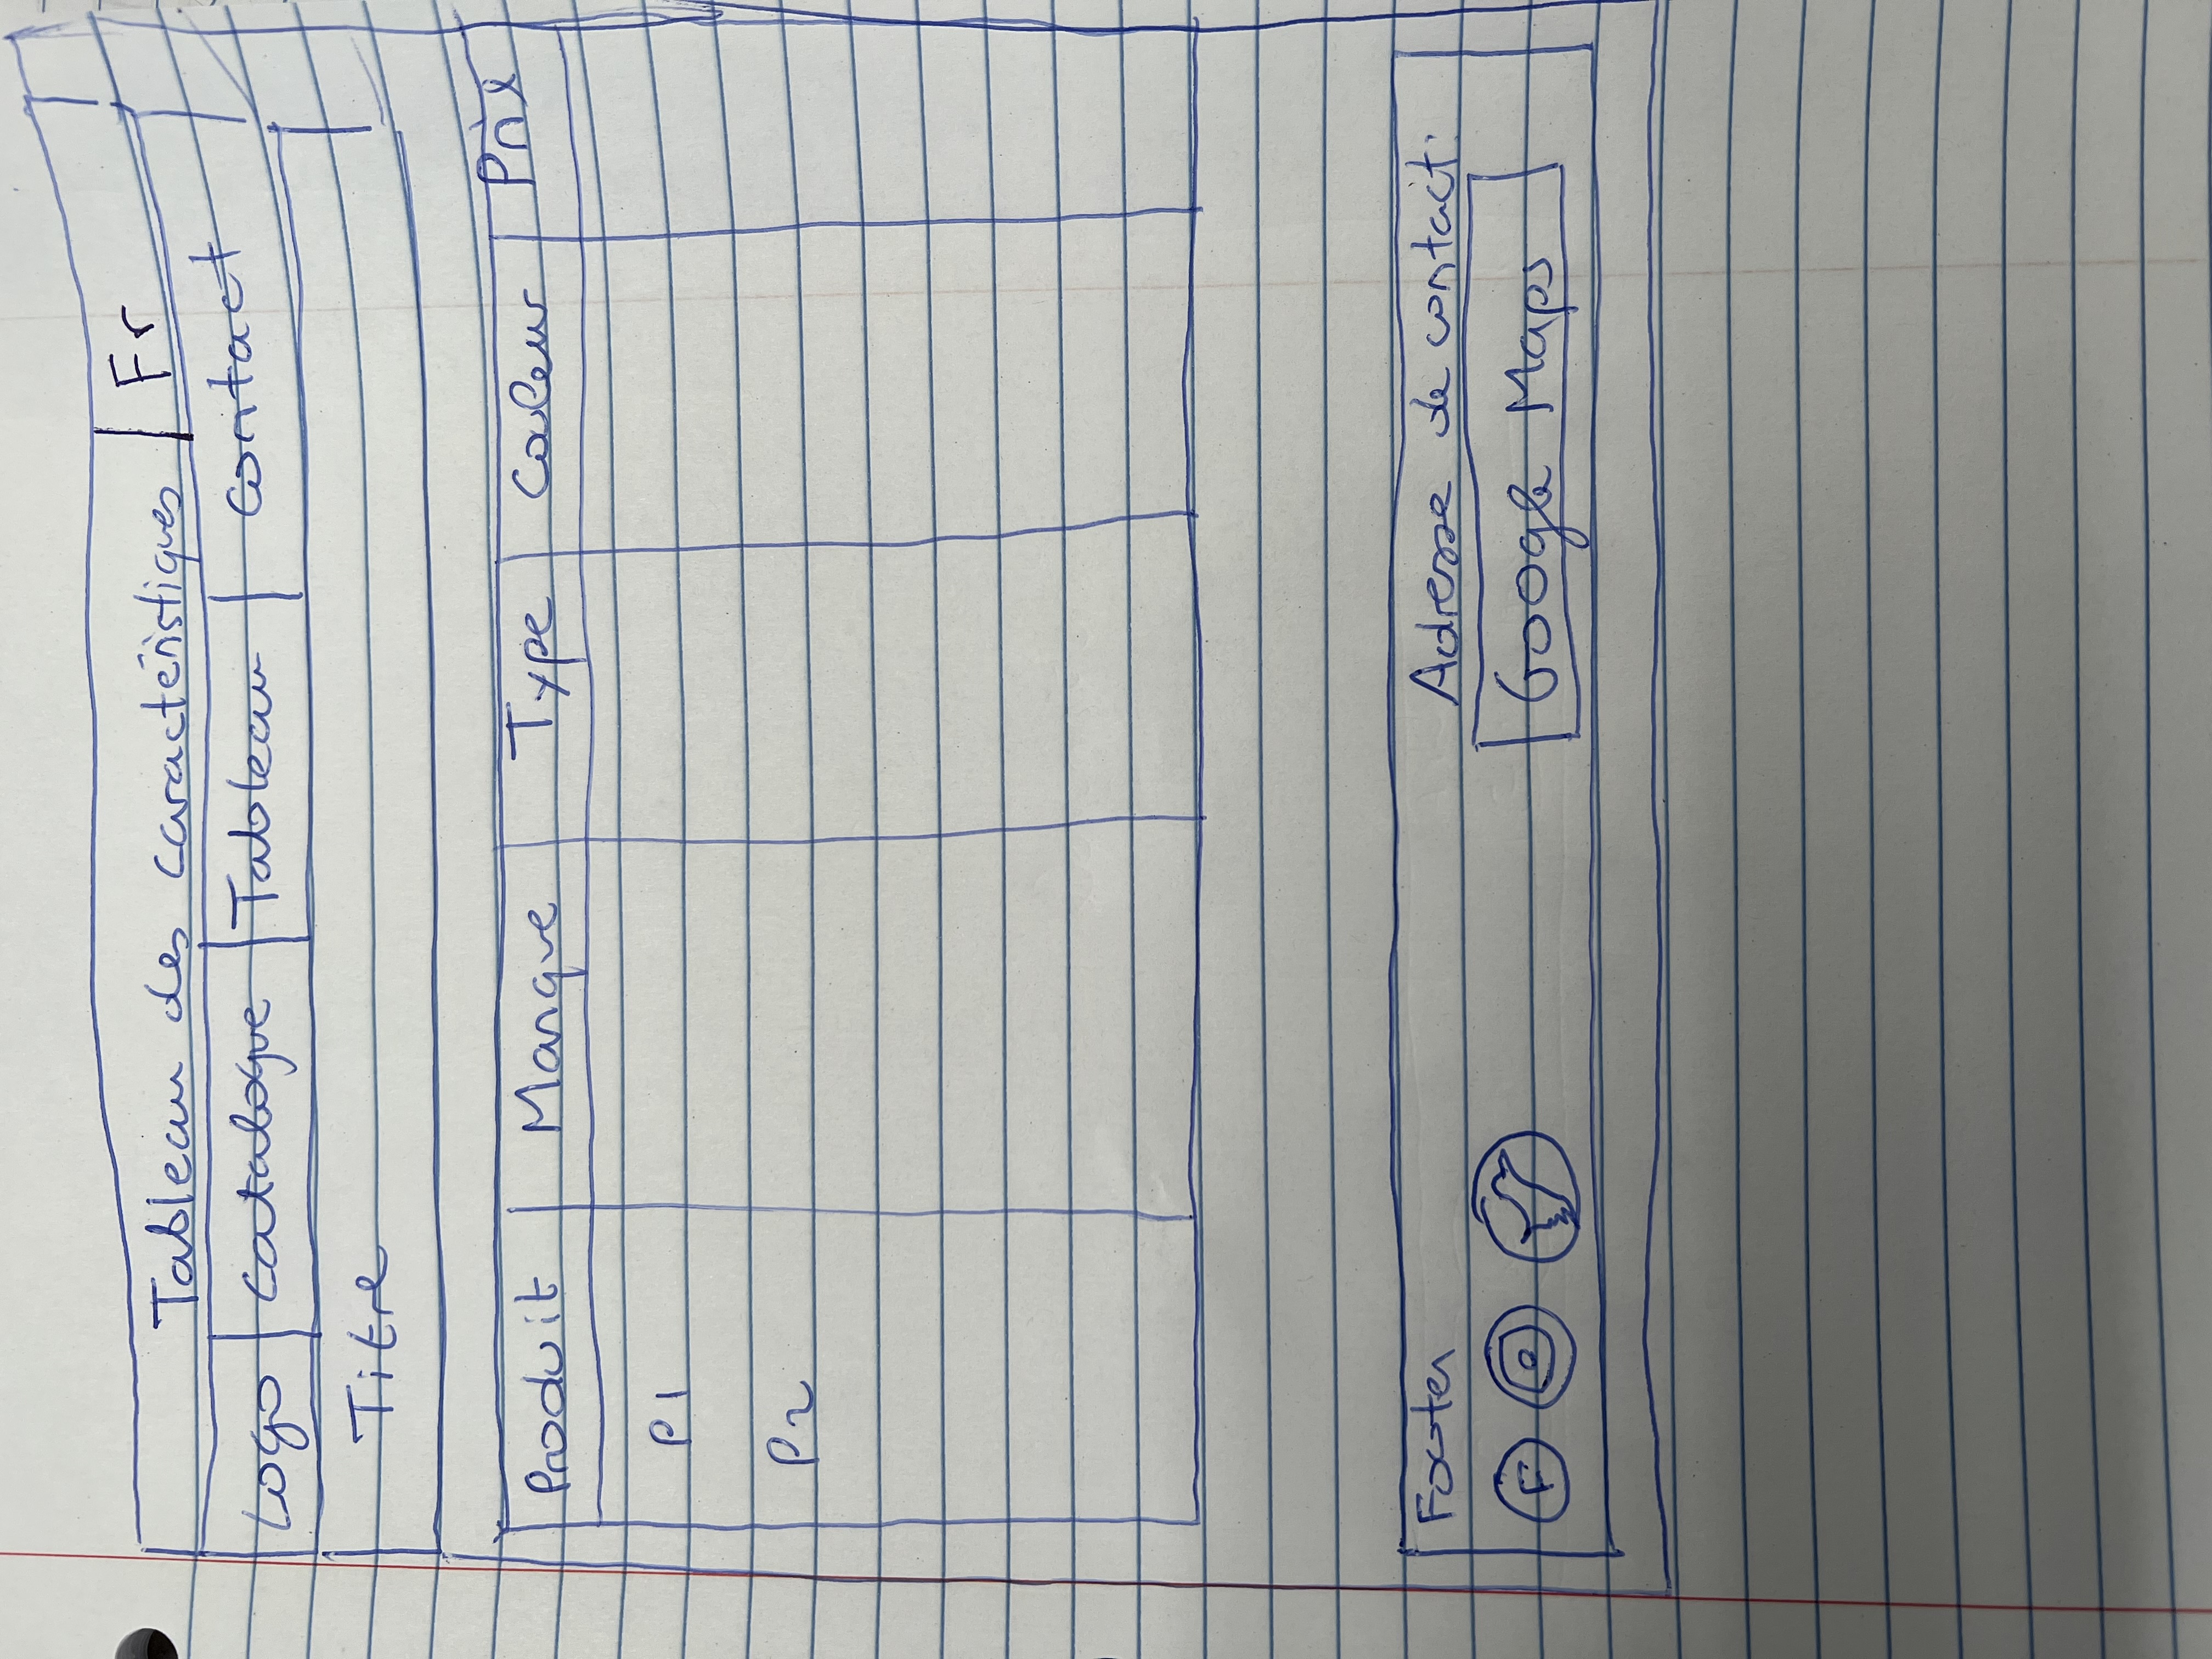 Tableau des caractéristiques | Fr
Logo Catalogue Tableau Contact
Titre
Produit Marque Type Couleur Prix
P1
P2
Footer Adresse de contact:
F Google Maps